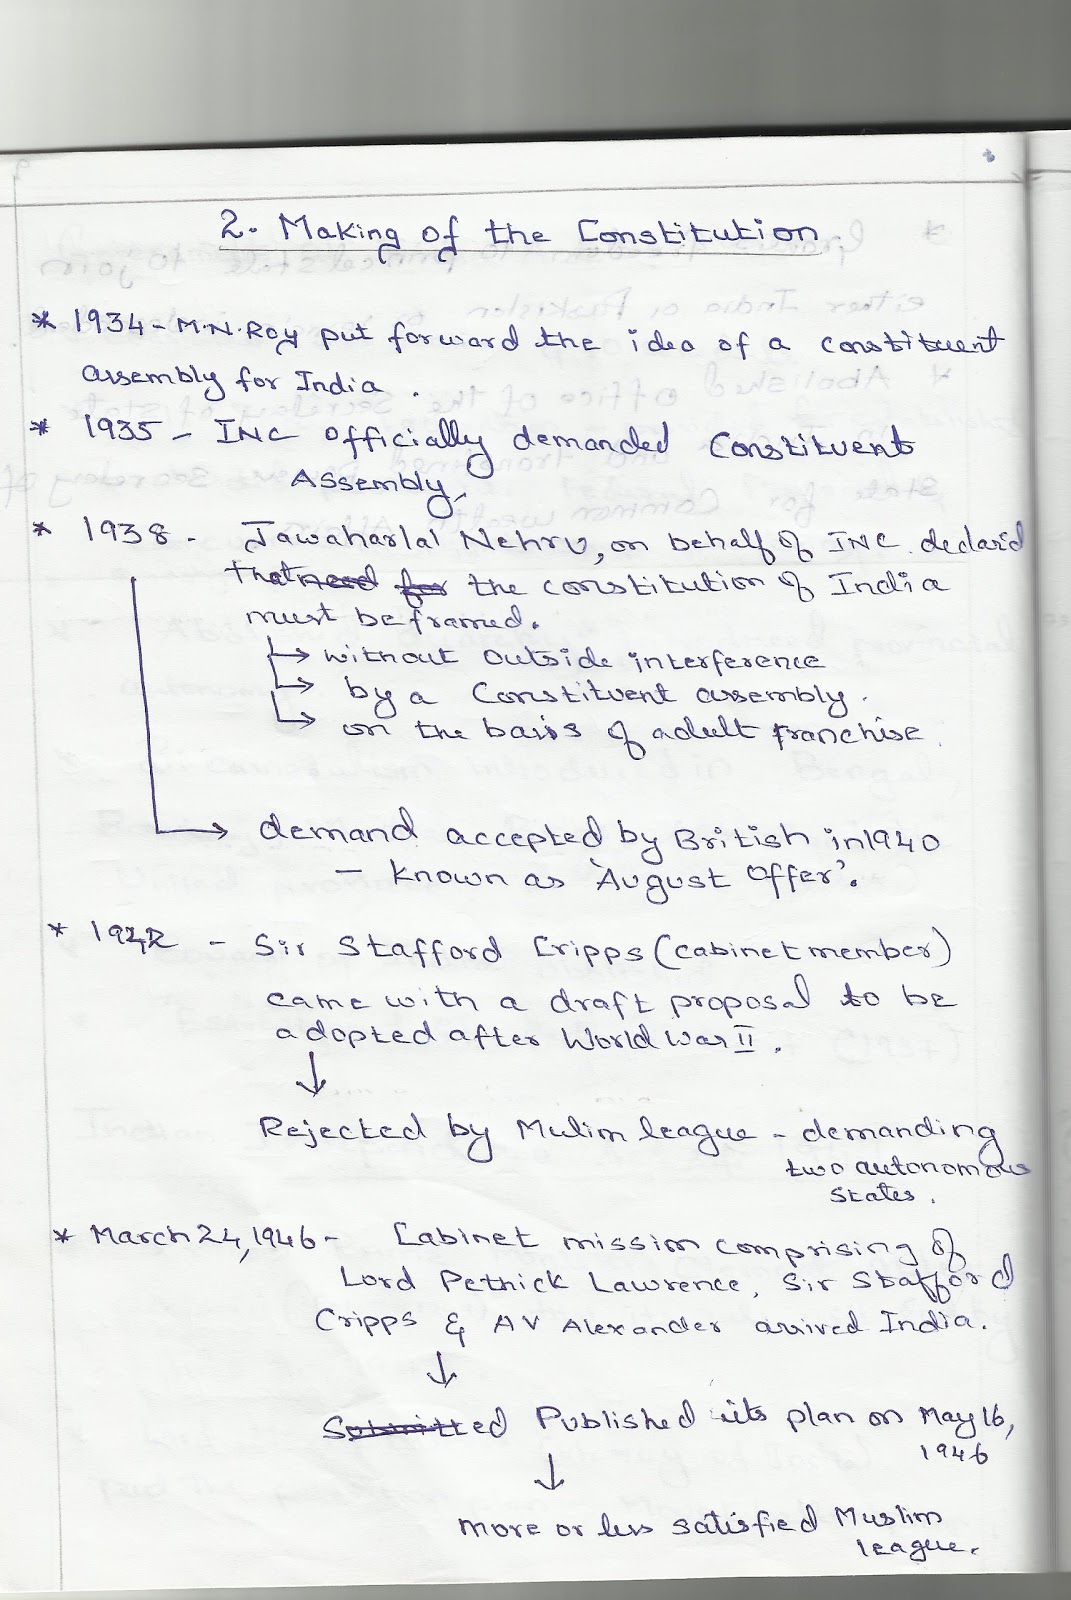 2. Making of the Constitution
* 1934 - M.N.Roy put forward the idea of a constituent
assembly for India.
* 1935 - INC officially demanded Constituent
Assembly.
* 1938 - Jawaharlal Nehru, on behalf of INC declared
that need for the constitution of India
must be framed.
→ without outside interference
→ by a Constituent assembly.
→ on the basis of adult franchise.
→ demand accepted by British in 1940
— known as 'August Offer'.
* 1942 - Sir Stafford Cripps (cabinet member)
came with a draft proposal to be
adopted after World War II.
↓
Rejected by Mulim league - demanding
two autonomous
states.
* March 24, 1946 - Cabinet mission comprising of
Lord Pethick Lawrence, Sir Stafford
Cripps & AV Alexander arrived India.
↓
Submitted Published its plan on May 16,
1946
↓
more or less satisfied Muslim
league.